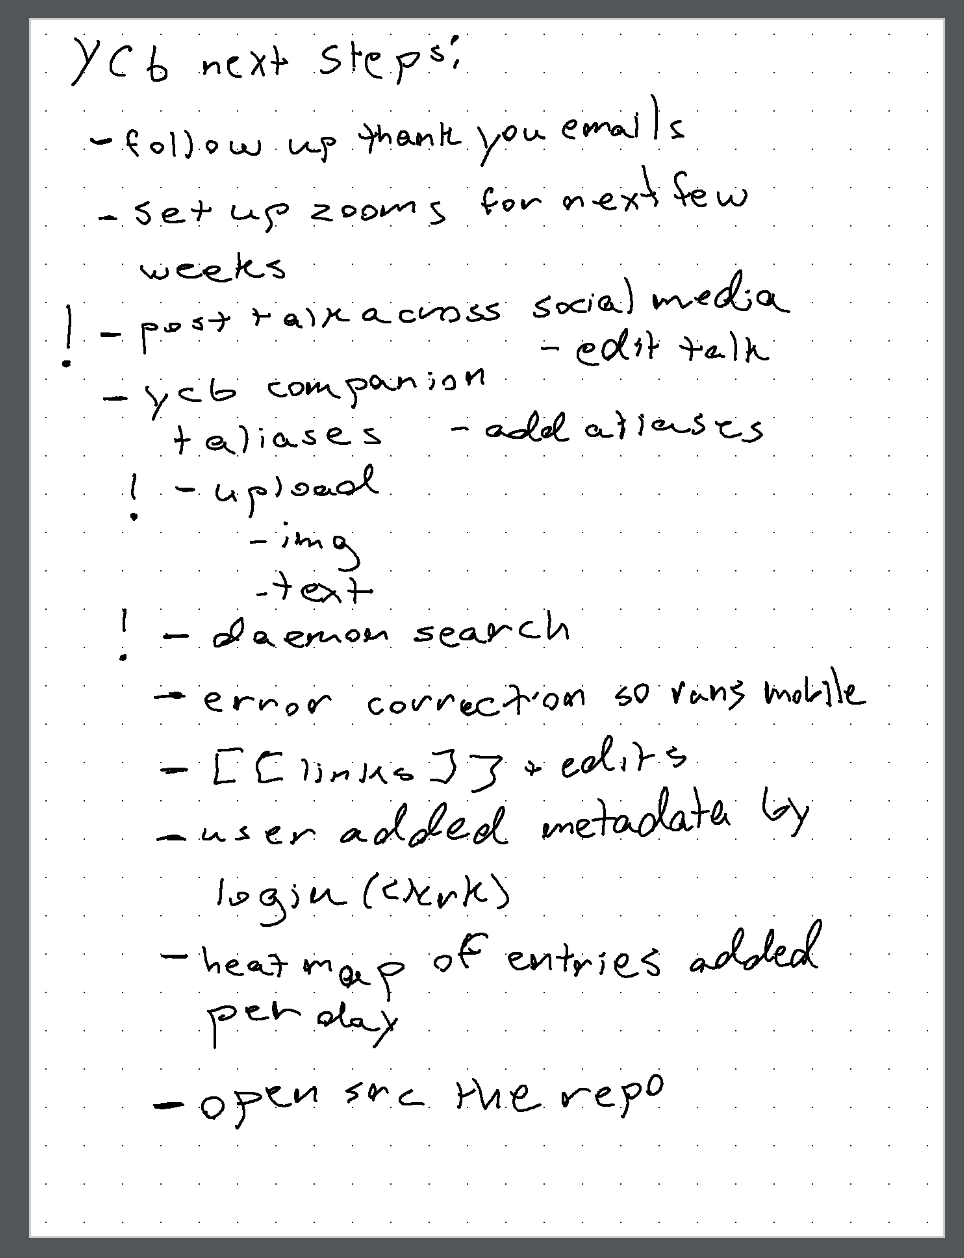 ycb next steps:
- follow up thank you emails
- set up zooms for next few
weeks
! - post talk across social media
- edit talk
- ycb companion
+ aliases - add aliases
! - upload
- img
- text
! - daemon search
- error correction so runs mobile
- [[links]] + edits
- user added metadata by
login (clerk)
- heat map of entries added
per day
- open src the repo